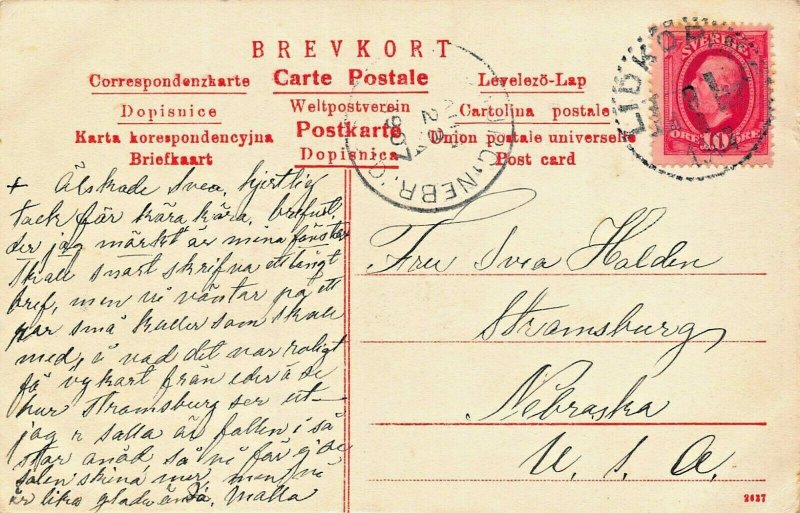 BREVKORT
Correspondenzkarte Carte Postale Levelező-Lap
Dopisnice Weltpostverein Cartolina postale
Karta korespondencyjna Postkarte Union postale universelle
Briefkaart Dopisnica Post card
LIDKÖPING
SVERIGE
ÖRE 10 ÖRE
NEBR.
1907
+ Älskade Svea, hjertlig
tack för kära kära, brefvet,
der jag märkt är mina fönster
Skall snart skrifva ett långt
bref, men vi väntar på ett
par små kullor som skall
med, å vad det var roligt
få vykort från eder å se
hur Stromsburg ser ut
jag sålla är fallen i så
stor
solen skina mer, men vi
är lika glade ändå, Malla
Fru Svea Holden
Stromsburg
Nebraska
U. S. A.
2637